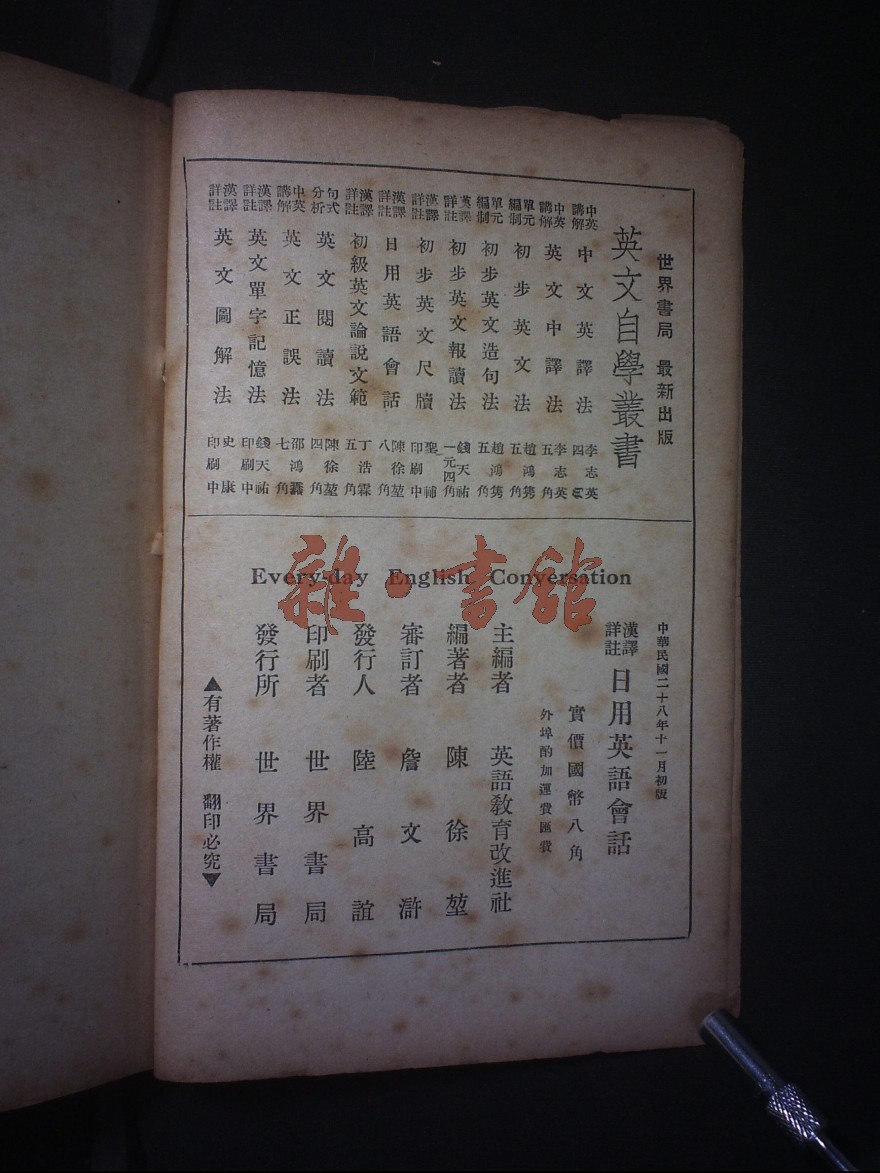 世界書局 最新出版
英文自學叢書
中英講解 中文英譯法 李志英 四角
中英講解 英文中譯法 李志英 五角
單元編制 初步英文法 趙鴻雋 五角
單元編制 初步英文造句法 趙鴻雋 五角
漢譯詳註 初步英文報讀法 錢天祐 一元四角
漢譯詳註 初步英文尺牘 聖輔 印刷中
漢譯詳註 日用英語會話 陳徐堃 八角
漢譯詳註 初級英文論說文範 丁浩霖 五角
句式分析 英文閱讀法 陳徐堃 四角
中英講解 英文正誤法 邵鴻馨 七角
漢譯詳註 英文單字記憶法 錢天祐 印刷中
漢譯詳註 英文圖解法 史康 印刷中
Every-day English Conversation
雜·書館
中華民國二十八年十一月初版
漢譯詳註 日用英語會話
實價國幣八角
外埠酌加運費匯費
主編者 英語教育改進社
編著者 陳徐堃
審訂者 詹文滸
發行人 陸高誼
印刷者 世界書局
發行所 世界書局
▲有著作權 翻印必究▼